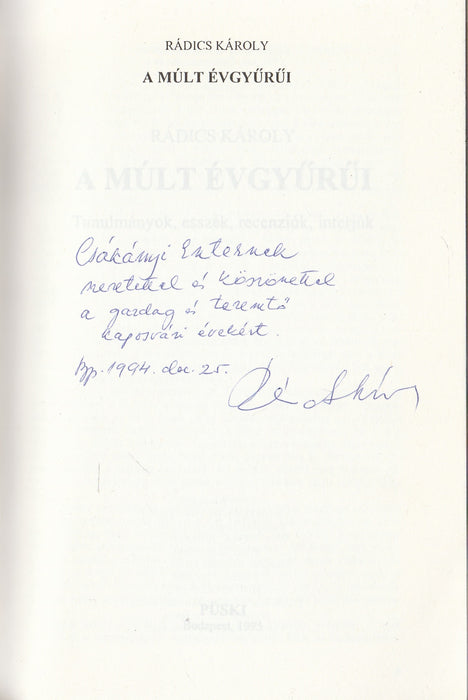 RÁDICS KÁROLY
A MÚLT ÉVGYŰRŰI
RÁDICS KÁROLY
A MÚLT ÉVGYŰRŰI
Tanulmányok, esszék, recenziók, interjúk
Csákányi Eszternek
szeretettel és köszönettel
a gazdag és teremtő
kaposvári évekért.
Bp. 1994. dec. 25.
PÜSKI
Budapest, 1995